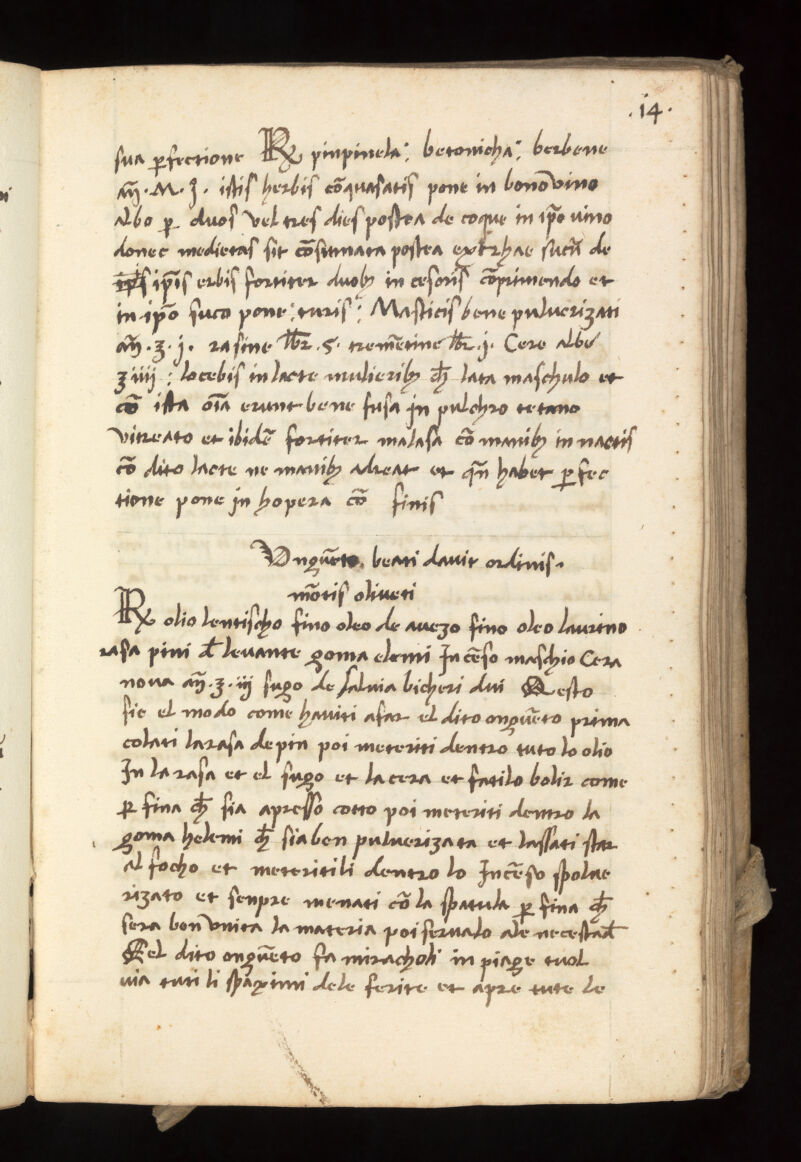 .14.
sua ꝑfectione ℞ pinpinela; betonicha; berbene
añ. M. j. istis herbis cõquasatis pone in bono vino
albo ꝑ duos vel tres dies postea de coque in ip̃o vino
donec medietas sit cõsumata postea extrhae sucũ de
ip̃is erbis fortiter duobꝫ in cesoris cõprimendo et
in ip̃o suco pone; turis; Masticis bene puluerizati
añ. ʒ. j. rasine lbr. 5. tremẽtine lbr. j. Cere albe
ʒ iiij; locebis in lacte mulieribꝫ q̃ lata maschulo et
cõ ista oĩa erunt bene fusa in pulchro tetano
vitreato et ibidẽ fortiter malasa cõ manibꝫ in nactis
cõ dito lacte ne manibꝫ adreat et qñ habet ꝑfec
tione pone in hopera cõ finis
Vnguẽto. beati dauit ordinis.
mõtis oliueti
℞ olio lentischo fino oleo de avezo fino oleo laurino
rasa pini d̃ levante goma elemi Incẽso maschio Cera
nova añ. ʒ. iij sugo de salvia bicheri dui Qesto
sie el modo come haviti afar el dito onguẽto prima
colati la rasa de pin poi meteriti dentro tuto lo olio
In la rasa et el sugo et la cera et fatilo bolir come
ꝑ fina q̃ sia apresso cotto poi meteriti dentro la
goma helemi q̃ sia ben puluerizata et lassati star
al focho et meteritili dentro lo Incẽso spolue
rizato et senpre menati cõ la spatula ꝑ fina q̃
sera bon vnita la materia poi servalo ale necestad̃
Eel dito onguẽto fa miracholi in piage tuol
via tuti li spaximi dele ferite et apre tute le